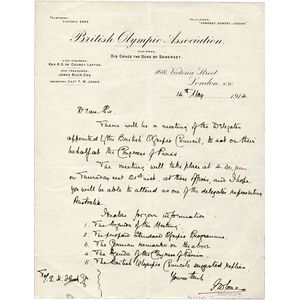 TELEPHONE: VICTORIA 2892
TELEGRAMS:
British Olympic Association.
CHAIRMAN:
HIS GRACE THE DUKE OF SOMERSET.
REV. R. S. DE COURCY LAFFAN
JAMES BLAIR ESQ
108, Victoria Street
London, S.W.
16th May 1914
Dear Sir,
There will be a meeting of the Delegates
appointed by the British Olympic Council, to act on their
behalf at the Congress of Paris
The meeting will take place at 4.30 pm
on Thursday next 21st inst at these offices, and I hope
you will be able to attend as one of the delegates representing
Australia
I enclose for your information
1. The Agenda of the Meeting
2. The proposed Standard Olympic Programme
3. The German remarks on the above
4. The Agenda of the Congress of Paris
5. The British Olympic Councils suggested replies
Yours truly